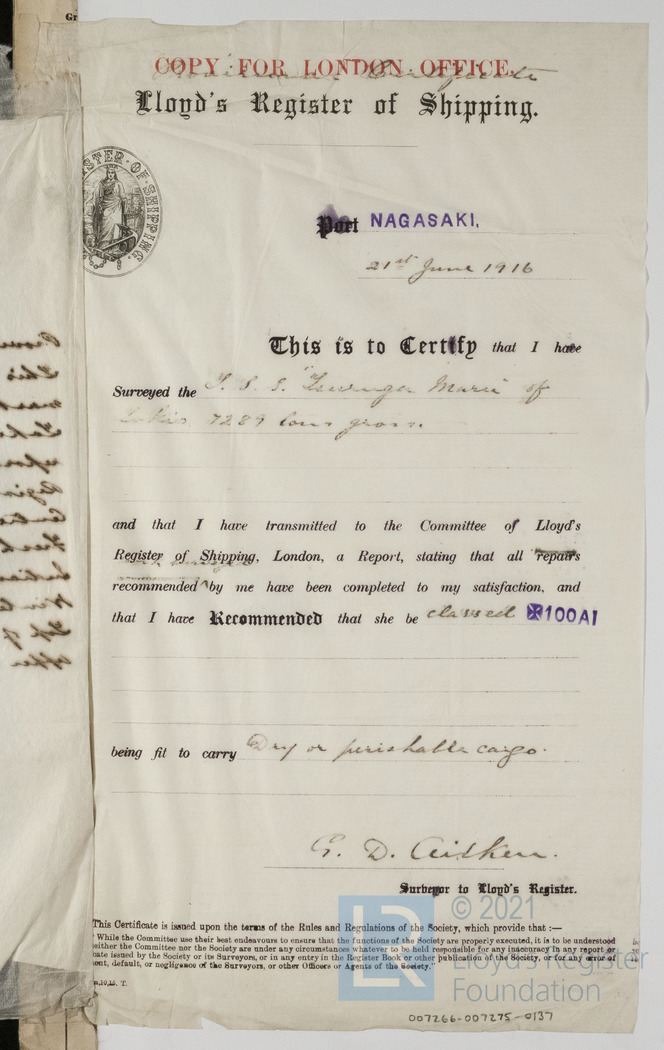 Gr
COPY FOR LONDON OFFICE.
Certificate
Lloyd's Register of Shipping.
STER·OF·SHIPPING.
Port NAGASAKI.
21st June 1916
This is to Certify that I have
Surveyed the T. S. S. "Tsuruga Maru" of
7289 tons gross.
and that I have transmitted to the Committee of Lloyd's
Register of Shipping, London, a Report, stating that all repairs
recommended by me have been completed to my satisfaction, and
that I have Recommended that she be classed ✠100A1
being fit to carry Dry or perishable cargo.
G. D. Aitken.
Surveyor to Lloyd's Register.
This Certificate is issued upon the terms of the Rules and Regulations of the Society, which provide that :—
"While the Committee use their best endeavours to ensure that the functions of the Society are properly executed, it is to be understood
either the Committee nor the Society are under any circumstances whatever to be held responsible for any inaccuracy in any report or
cate issued by the Society or its Surveyors, or in any entry in the Register Book or other publication of the Society, or for any error of
ent, default, or negligence of the Surveyors, or other Officers or Agents of the Society."
,10,15. T.
LR
© 2021
Lloyd's Register
Foundation
007266-007275-0137